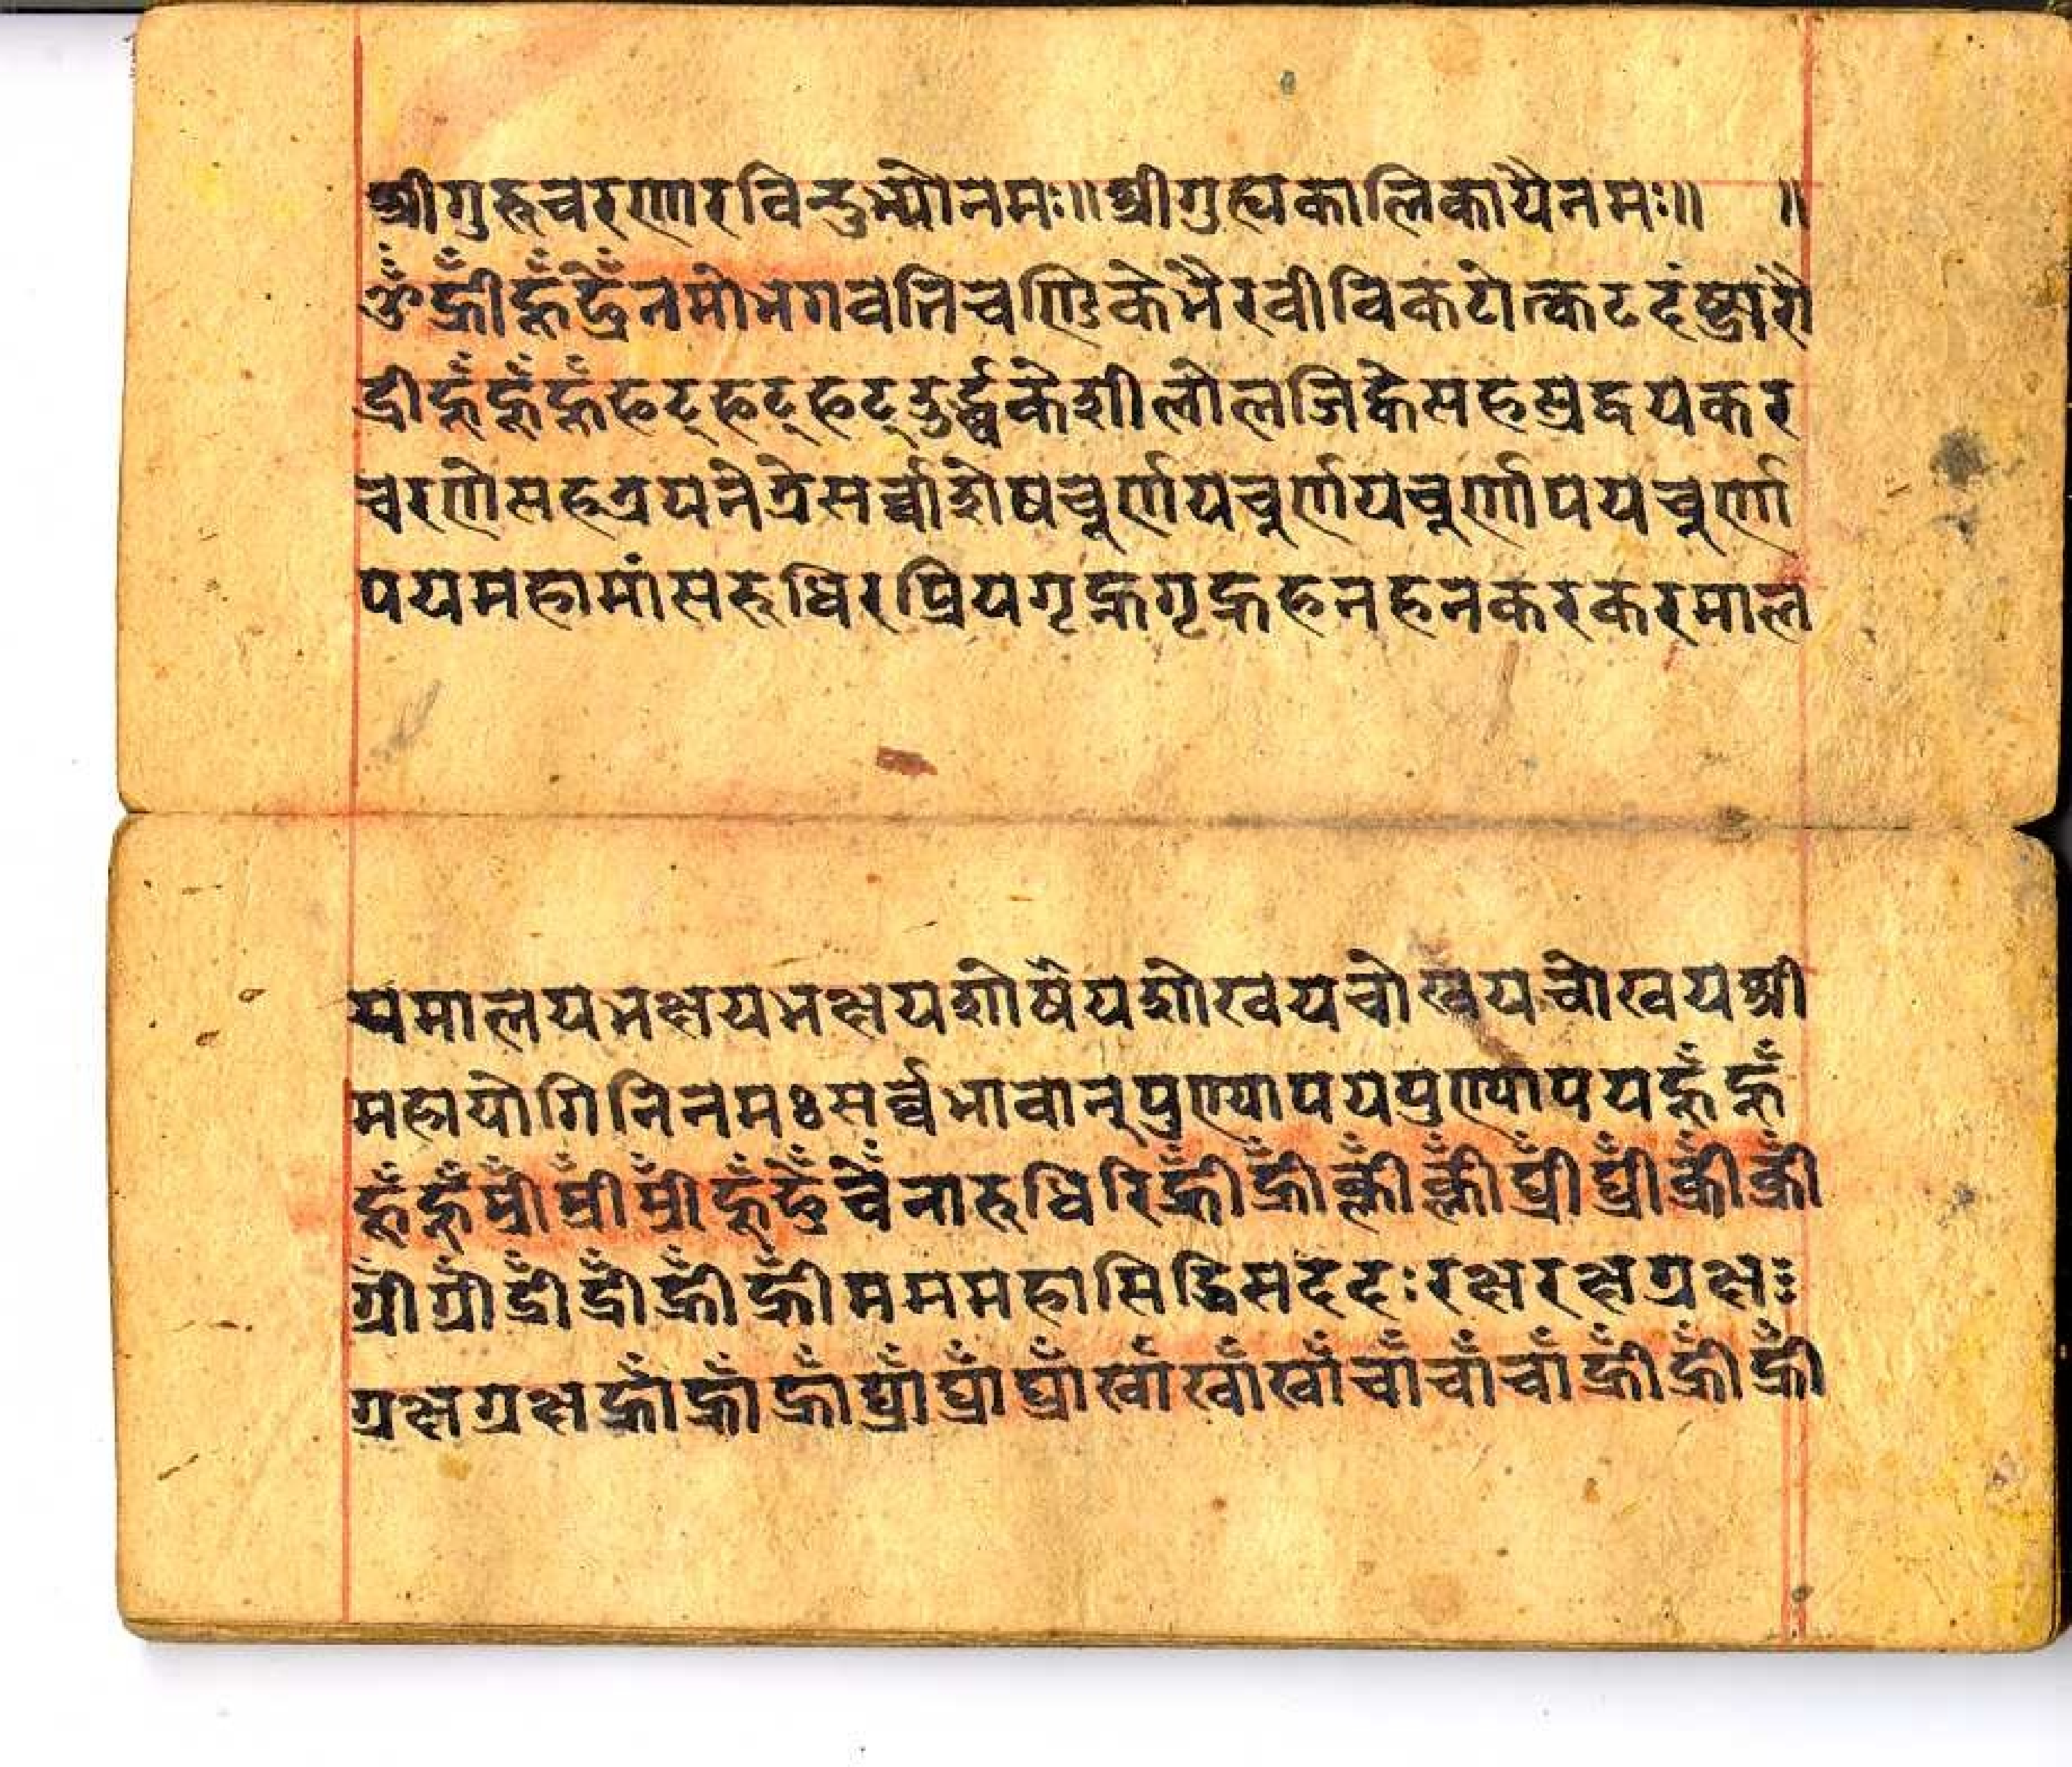 श्रीगुरुचरणारविन्दुभ्यौनमः॥श्रीगुह्यकालिकायैनमः॥ ॥
ॐह्रीँह्रूँछ्रेँनमोभगवतिचण्डिकेभैरवीविकटोत्कटदंष्ट्रारौ
द्रीह्रूँह्रूँह्रूँफट्फट्फट्दुर्द्ध्वकेशीलोलजिह्वेसहस्रद्वयकर
चरणेसहत्रयनेत्रेसर्व्वाशेषचूर्णयचूर्णयचूर्णापयचूर्णा
पयमहामांसरुधिरप्रियगृह्नगृह्नहनहनकरकर्माल
यमालयभक्षयभक्षयशोषयशोखयचोखयचोखयश्री
महायोगिनिनमःसर्व्वभावान्पुण्यापयपुण्यापयह्रूँह्रूँ
ह्रूँह्रूँम्रीँम्रीँम्रीँह्रूँछ्रेँचेँनारुधिरिह्रीँह्रीँक्लीँक्लीँघ्रीँघ्रीँक्रीँक्रीँ
ग्रीँग्रीँद्रीँद्रीँह्रीँह्रीँमममहासिद्धिमदेदःरक्षरक्षग्रक्षः
ग्रक्षग्रक्षह्राँह्राँह्राँघ्राँघ्राँघ्राँखाँखाँखाँचाँचाँचाँह्रीँह्रीँह्रीँ